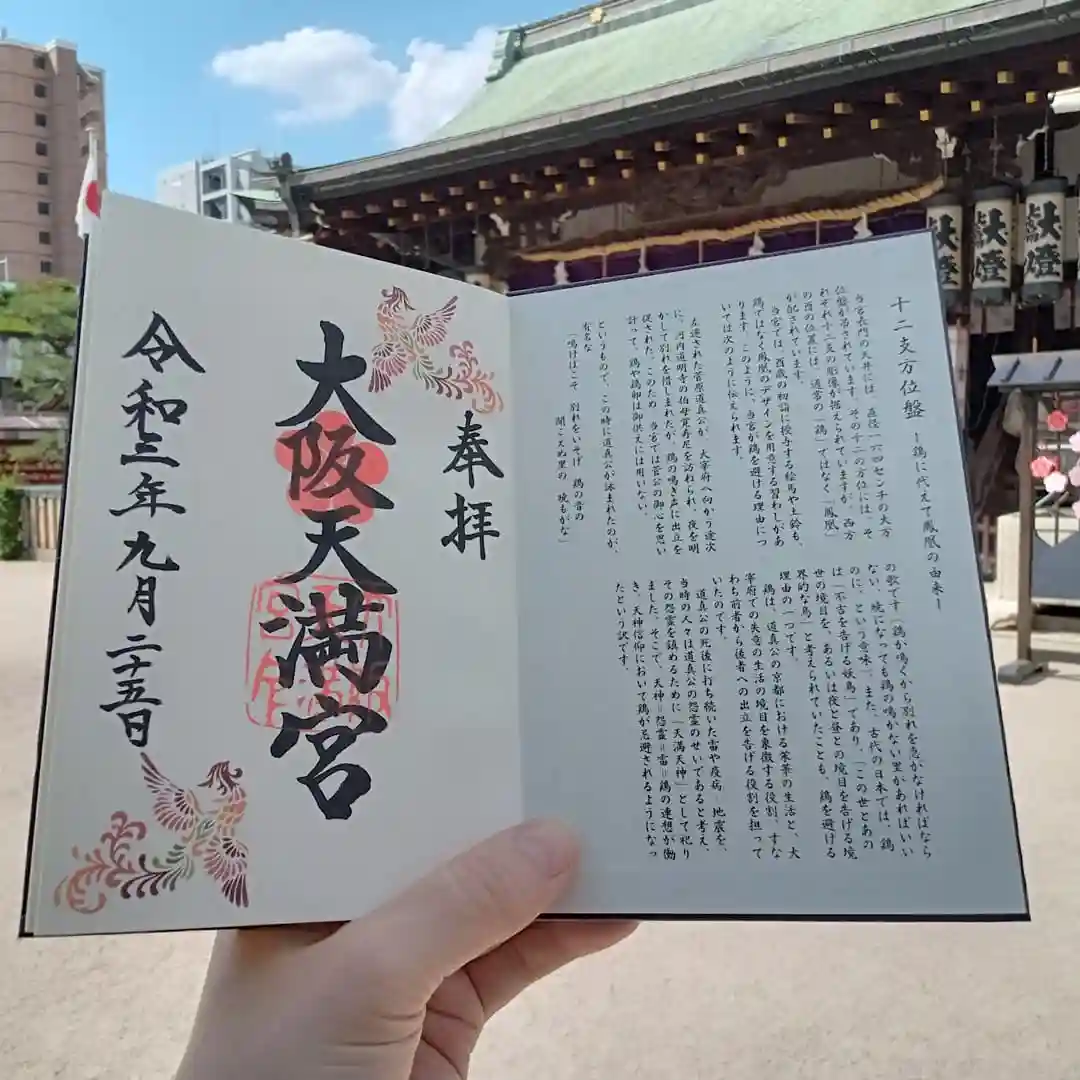 十二支方位盤
―鶏に代えて鳳凰の由来―
当宮表門の天井には、直径一六四センチの大方
位盤が吊されています。その十二の方位には、そ
れぞれ十二支の彫像が据えられていますが、西方
の酉の位置には、通常の「鶏」ではなく「鳳凰」
が配されています。
当宮では、酉歳の初詣に授与する絵馬や土鈴も、
鶏ではなく鳳凰のデザインを用意する習わしがあ
ります。このように、当宮が鶏を避ける理由につ
いては次のように伝えられます。
左遷された菅原道真公が、大宰府へ向かう途次
に、河内道明寺の伯母覚寿尼を訪ねられ、夜を明
かして別れを惜しまれたが、鶏の鳴き声に出立を
促された。このため、当宮では菅公の御心を思い
計って、鶏や鶏卵は御供えには用いない、
というもので、この時に道真公が詠まれたのが、
有名な
「鳴けばこそ 別れをいそげ 鶏の音の
聞こえぬ里の 暁もがな」
の歌です（鶏が鳴くから別れを急がなければなら
ない、暁になっても鶏の鳴かない里があればいい
のに、という意味）。また、古代の日本では、鶏
は「不吉を告げる妖鳥」であり、「この世とあの
世の境目を、あるいは夜と昼との境目を告げる境
界的な鳥」と考えられていたことも、鶏を避ける
理由の一つです。
鶏は、道真公の京都における栄華の生活と、大
宰府での失意の生活の境目を象徴する役割、すな
わち前者から後者への出立を告げる役割を担って
いたのです。
道真公の死後に打ち続いた雷や疫病・地震を、
当時の人々は道真公の怨霊のせいであると考え、
その怨霊を鎮めるために「天満天神」として祀り
ました。そこで、天神＝怨霊＝雷＝鶏の連想が働
き、天神信仰において鶏が忌避されるようになっ
たという訳です。
奉拝
大阪天満宮
令和三年九月二十五日
献燈
献燈
献燈